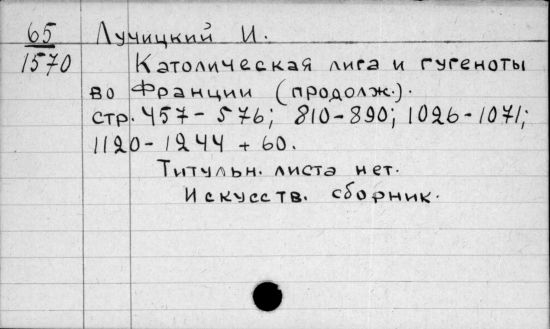 65 Лучицкий И.
1570 Католическая лига и гугеноты
во Франции (продолж.).
стр. 457-576; 810-890; 1026-1071;
1120-1244 + 60.
Титульн. листа нет.
Искусств. сборник.